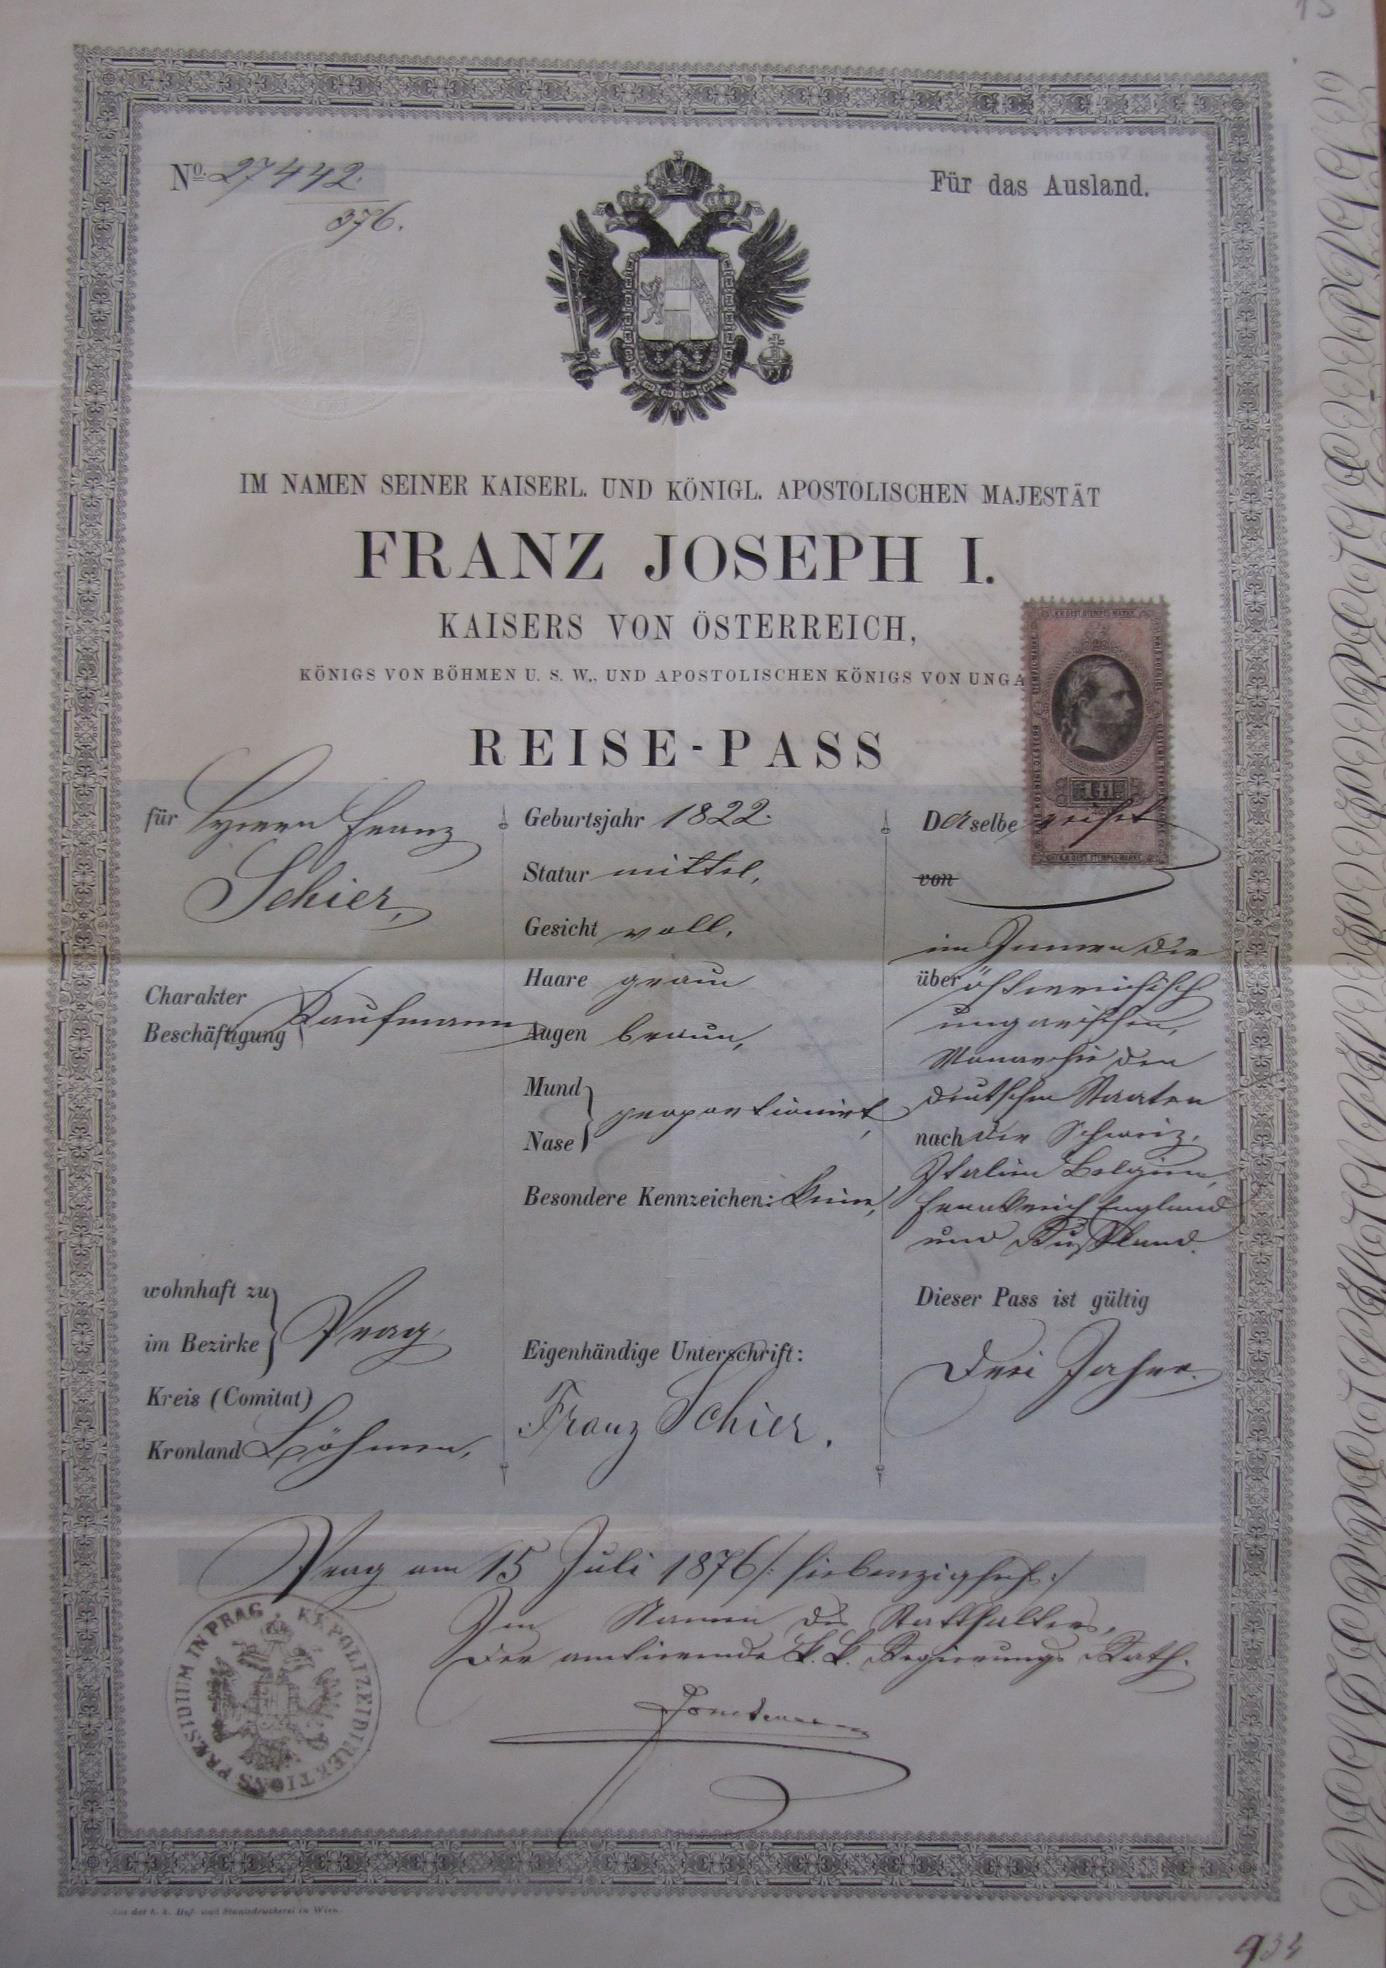 No. 27442.
376.
Für das Ausland.
IM NAMEN SEINER KAISERL. UND KÖNIGL. APOSTOLISCHEN MAJESTÄT
FRANZ JOSEPH I.
KAISERS VON ÖSTERREICH,
KÖNIGS VON BÖHMEN U. S. W., UND APOSTOLISCHEN KÖNIGS VON UNGA
REISE-PASS
für Herrn Franz
Schier,
Charakter
Beschäftigung
Kaufmann
wohnhaft zu
im Bezirke
Prag,
Kreis (Comitat)
Kronland Böhmen,
Geburtsjahr 1822.
Statur mittel,
Gesicht voll,
Haare grau
Augen braun,
Mund
Nase
proportionirt,
Besondere Kennzeichen: keine,
Eigenhändige Unterschrift:
Franz Schier.
Derselbe reiset
von
im Innern der
über österreichisch
ungarischen,
Monarchie den
deutschen Staaten
nach der Schweiz,
Italien Belgien,
Frankreich England
und Rußland.
Dieser Pass ist gültig
Drei Jahre.
Prag am 15 Juli 1876 /: siebenzigsechs :/
Im Namen des Statthalters,
Der amtirende k. k. Regierungs Rath.
K.K. POLIZEIDIREKTIONS-PRÆSIDIUM IN PRAG
Aus der k. k. Hof- und Staatsdruckerei in Wien.
934